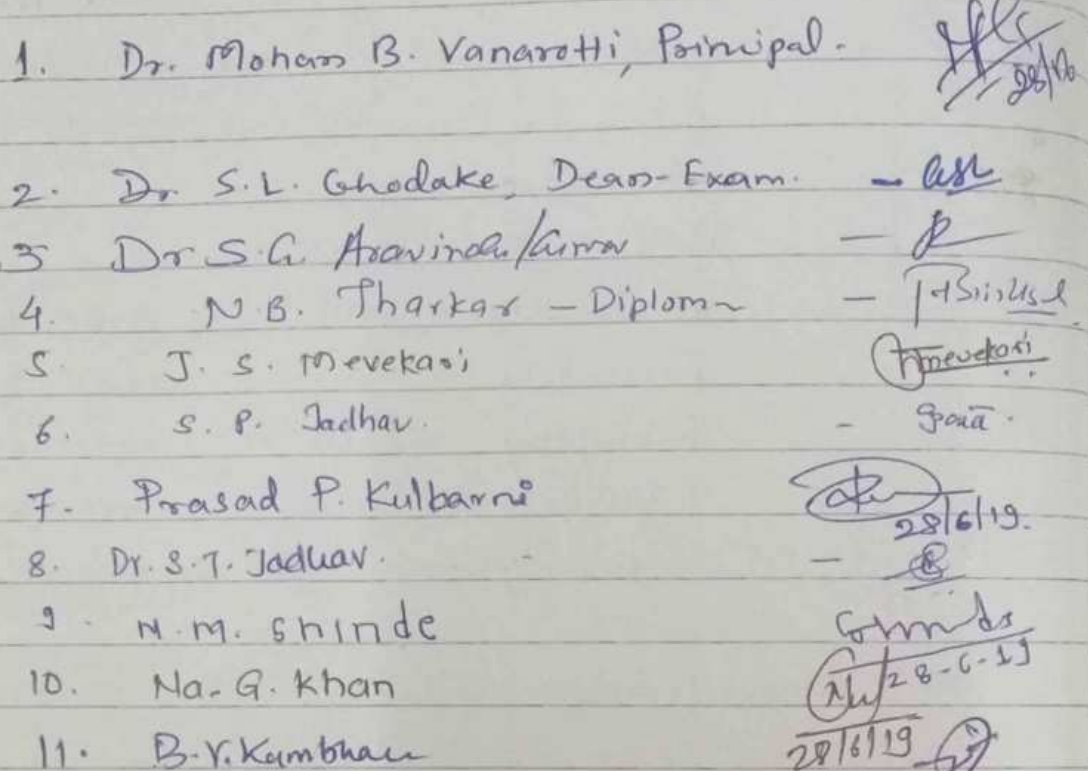 1. Dr. Mohan B. Vanarotti, Principal. 28/06
2. Dr. S.L. Ghodake, Dean-Exam. -
3 Dr S.G. Aravinda Kumar -
4. N.B. Tharkar - Diploma -
5. J. S. Mevekari Mevekari
6. S. P. Jadhav. -
7. Prasad P. Kulbarni 28/6/19.
8. Dr. S.T. Jadhav. -
9. M.M. Shinde
10. Na. G. Khan 28-6-19
11. B.V. Kambhar 28/6/19